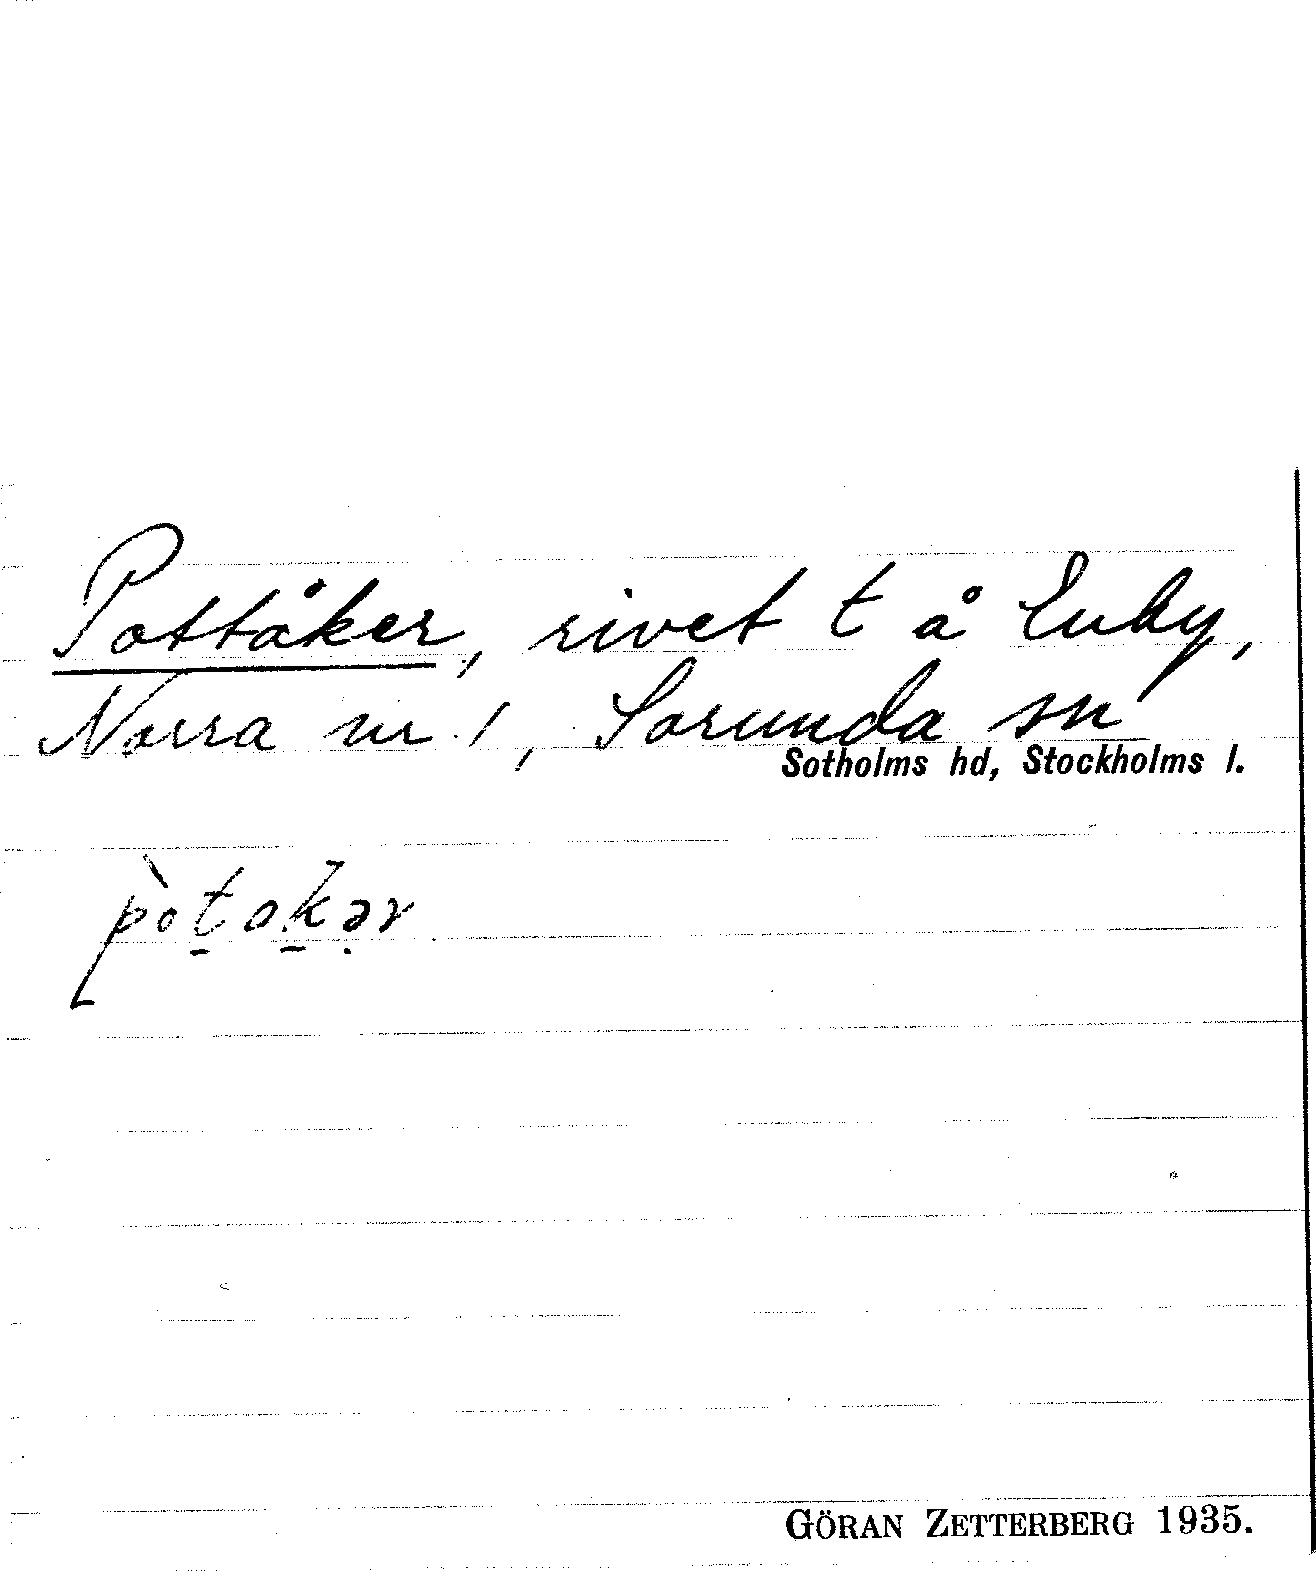 Pottåker, rivet t å Enby,
Norra nr 1, Sorunda sn
Sotholms hd, Stockholms l.
pòt̠ok̠ə̣r
GÖRAN ZETTERBERG 1935.